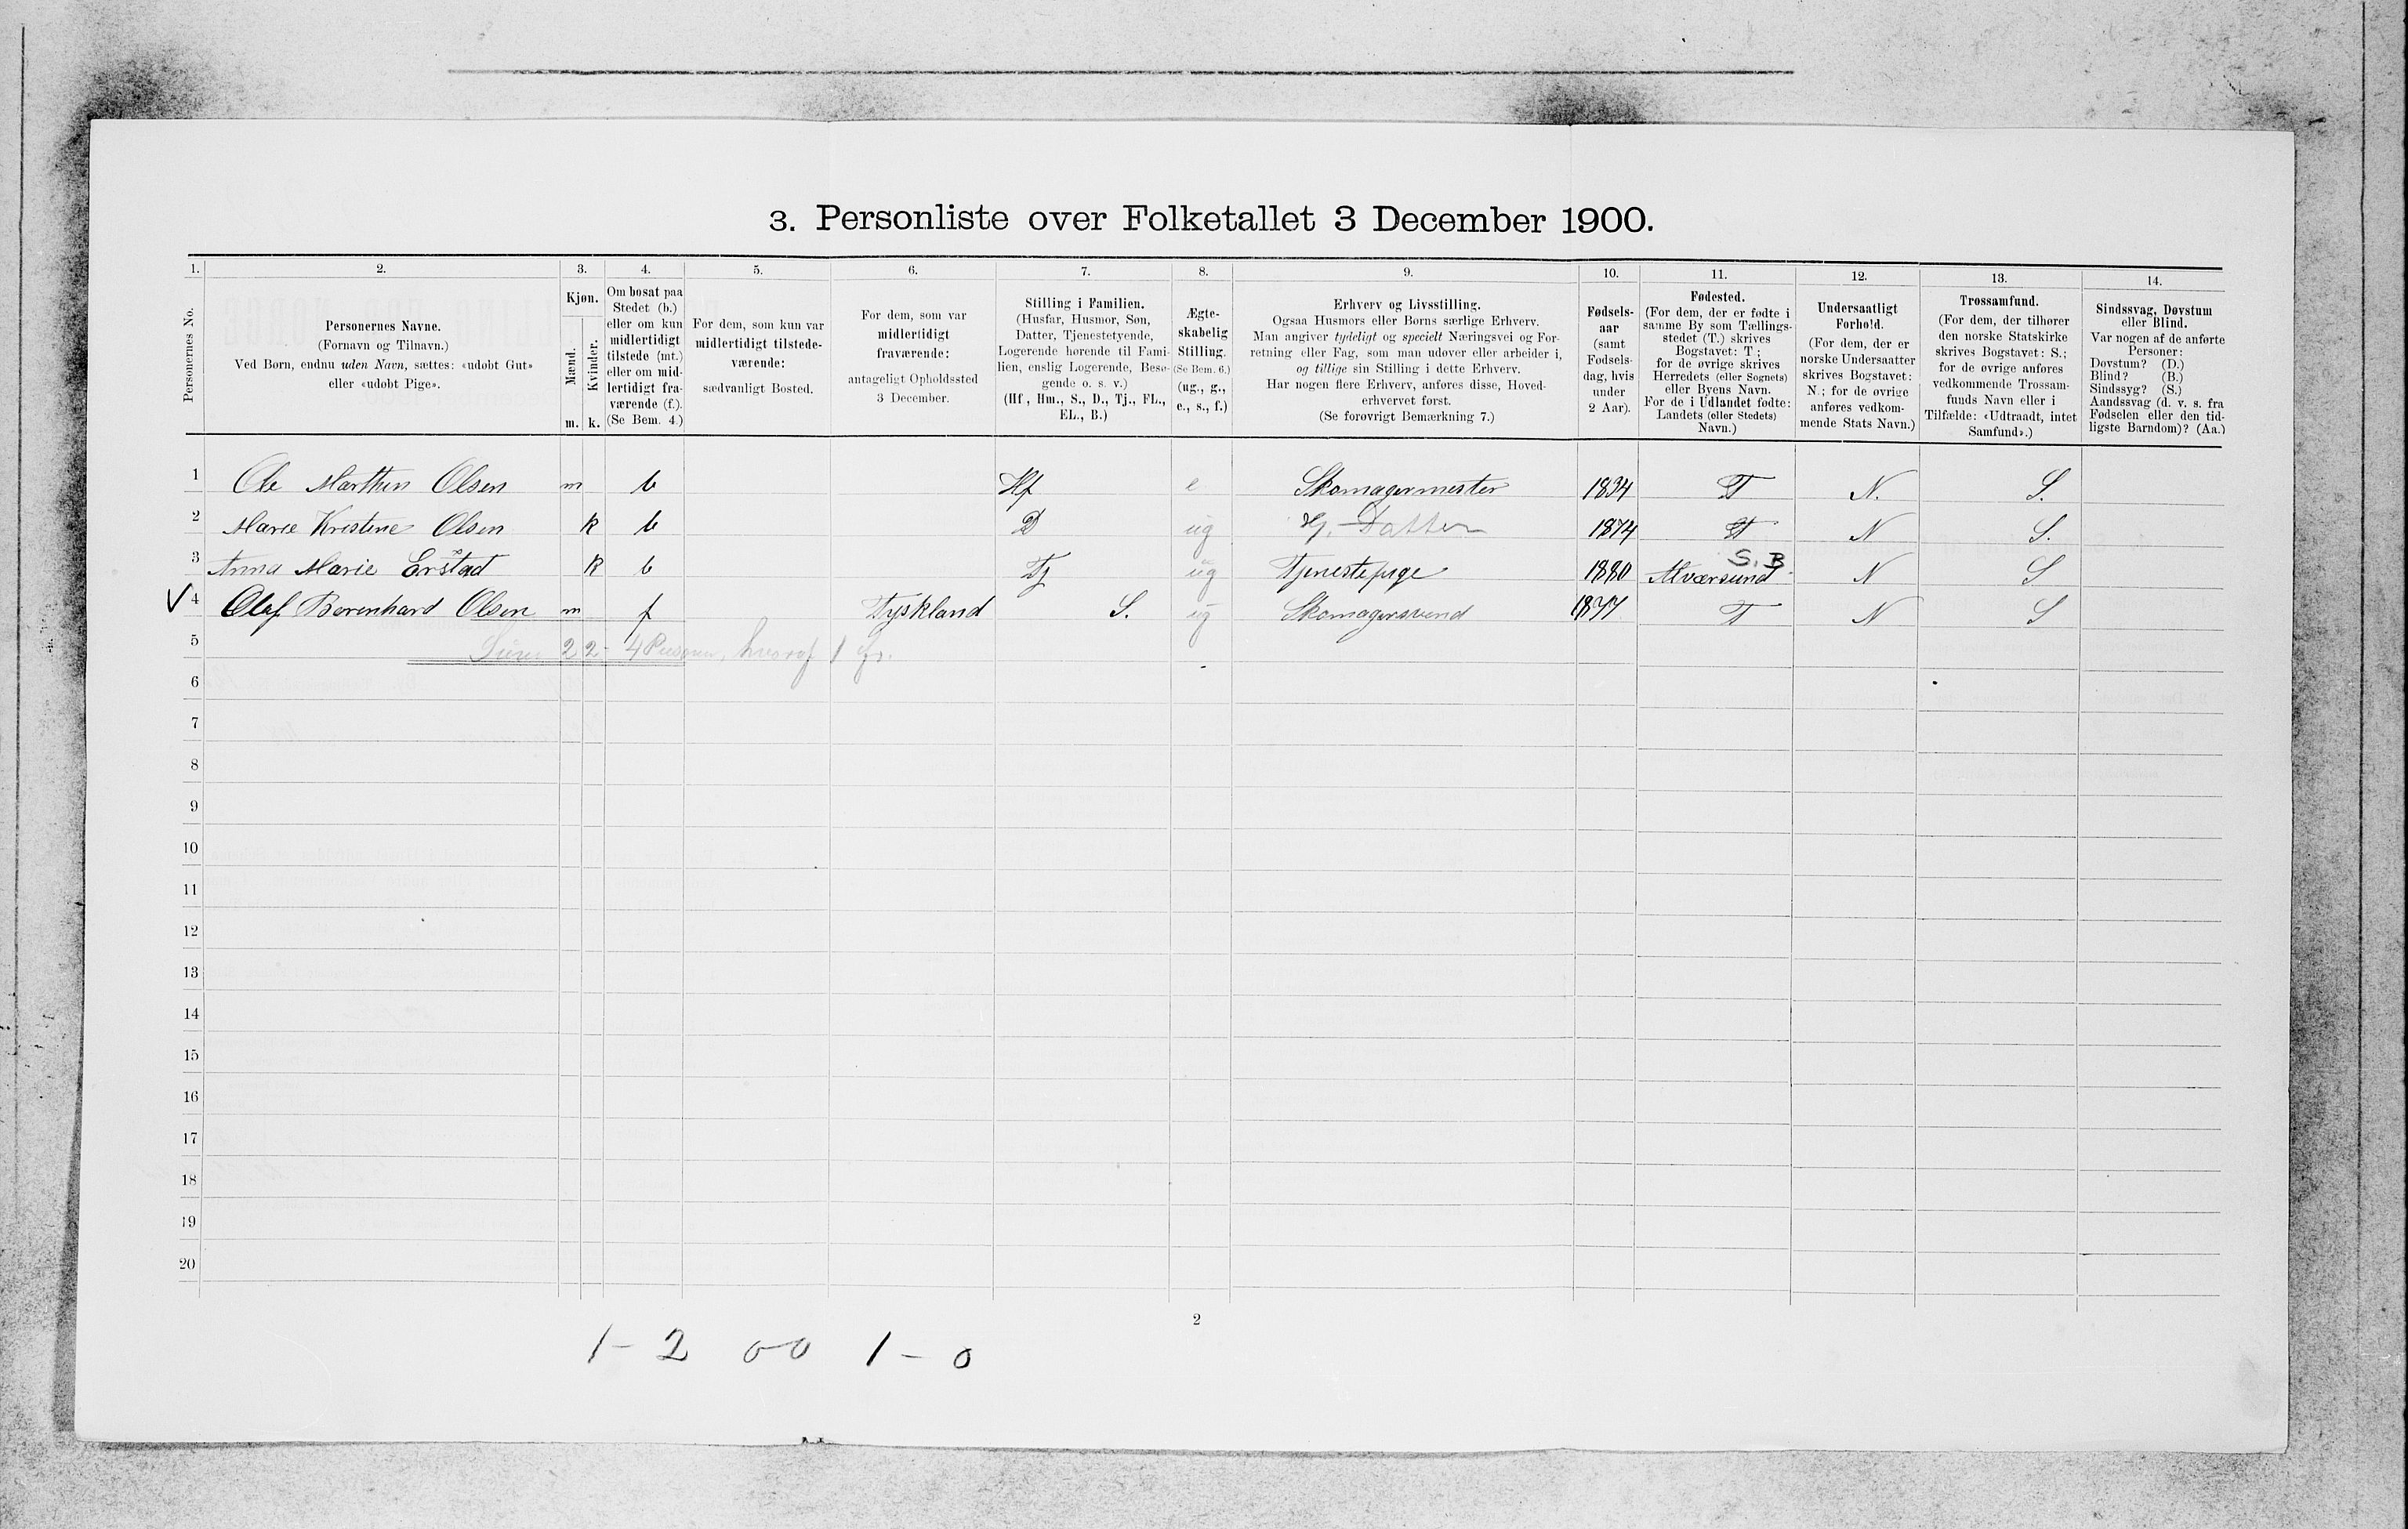 3. Personliste over Folketallet 3 December 1900.
1. 2. 3. 4. 5. 6. 7. 8. 9. 10. 11. 12. 13. 14.
Personernes No.
Personernes Navne.
(Fornavn og Tilnavn.)
Ved Børn, endnu uden Navn, sættes: «udøbt Gut»
eller «udøbt Pige».
Kjøn.
Mænd.
Kvinder.
m. k.
Om bosat paa
Stedet (b.)
eller om kun
midlertidigt
tilstede (mt.)
eller om mid-
lertidigt fra-
værende (f.).
(Se Bem. 4.)
For dem, som kun var
midlertidigt tilstede-
værende:
sædvanligt Bosted.
For dem, som var
midlertidigt
fraværende:
antageligt Opholdssted
3 December.
Stilling i Familien.
(Husfar, Husmor, Søn,
Datter, Tjenestetyende,
Logerende hørende til Fami-
lien, enslig Logerende, Besø-
gende o. s. v.)
(Hf, Hm., S., D., Tj., FL.,
EL., B.)
Ægte-
skabelig
Stilling.
(Se Bem. 6.)
(ug., g.,
e., s., f.)
Erhverv og Livsstilling.
Ogsaa Husmors eller Børns særlige Erhverv.
Man angiver tydeligt og specielt Næringsvei og For-
retning eller Fag, som man udøver eller arbeider i,
og tillige sin Stilling i dette Erhverv.
Har nogen flere Erhverv, anføres disse, Hoved-
erhvervet først.
(Se forøvrigt Bemærkning 7.)
Fødsels-
aar
(samt
Fødsels-
dag, hvis
under
2 Aar).
Fødested.
(For dem, der er fødte i
samme By som Tællings-
stedet (T.) skrives
Bogstavet: T;
for de øvrige skrives
Herredets (eller Sognets)
eller Byens Navn.
For de i Udlandet fødte:
Landets (eller Stedets)
Navn.)
Undersaatligt
Forhold.
(For dem, der er
norske Undersaatter
skrives Bogstavet:
N.; for de øvrige
anføres vedkom-
mende Stats Navn.)
Trossamfund.
(For dem, der tilhører
den norske Statskirke
skrives Bogstavet: S.;
for de øvrige anføres
vedkommende Trossam-
funds Navn eller i
Tilfælde: «Udtraadt, intet
Samfund».)
Sindssvag, Døvstum
eller Blind.
Var nogen af de anførte
Personer:
Døvstum? (D.)
Blind? (B.)
Sindssyg? (S.)
Aandssvag (d. v. s. fra
Fødselen eller den tid-
ligste Barndom)? (Aa.)
1 Ole Marthin Olsen m b Hf e Skomagermester 1834 T N. S.
2 Marie Kristine Olsen k b D ug Hj. Datter 1874 T N S.
S. B.
3 Anna Marie Erstad k b Tj ug Tjenestepige 1880 Alværsund N S
4 Olaf Berenhard Olsen m f Tyskland S. ug Skomagersvend 1877 T N S
5 2 2 4 Personer, hvoraf 1 fr.
6
7
8
9
10
11
12
13
14
15
16
17
18
19
20
2
1 - 2 0-0 1 - 0